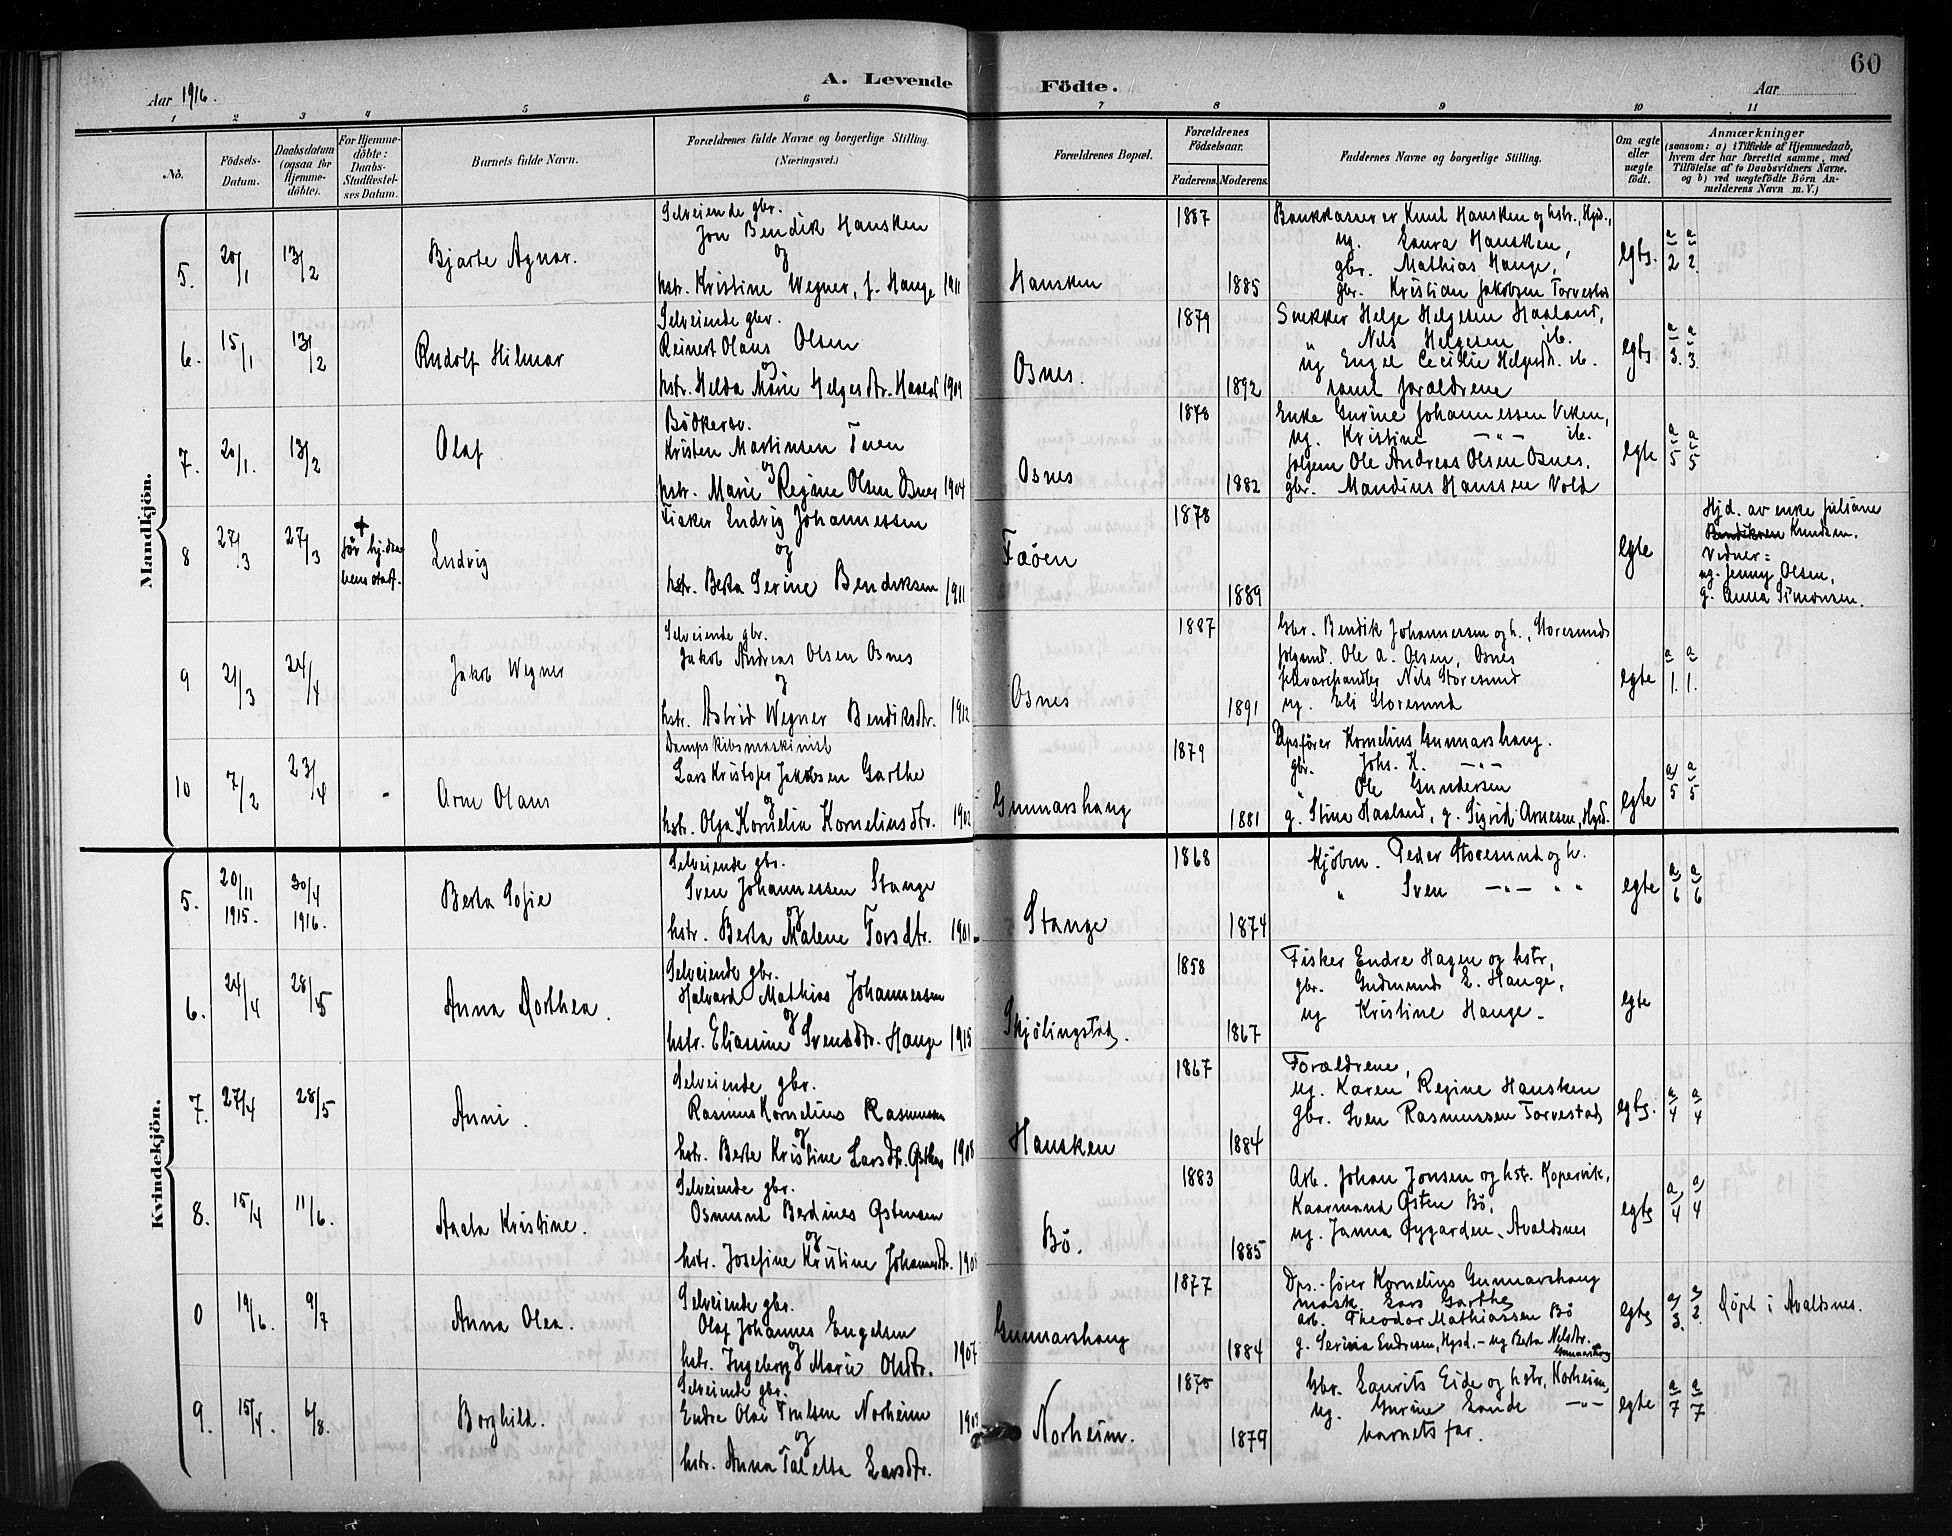 60
A. Levende Födte.
Aar 1916.
Aar
1 2 3 4 5 6 7 8 9 10 11
No.
Födsels-Datum.
Daabsdatum (ogsaa for Hjemme-döbte).
For Hjemme-döbte: Daabs-Stadfæstel-ses Datum.
Barnets fulde Navn.
Forældrenes fulde Navne og borgerlige Stilling. (Næringsvei.)
Forældrenes Bopæl.
Forældrenes Födselsaar.
Faderens. Moderens.
Faddernes Navne og borgerlige Stilling.
Om ægte eller uægte födt.
Anmærkninger
(saasom: a) i Tilfælde af Hjemmedaab, hvem der har forrettet samme, med Tilföielse af to Daabsvidners Navne. og b) ved uægtefödte Börn An-melderens Navn m. V.)
Mandkjön.
5. 20/1 13/2 Bjarte Agnar.
Selveiende gbr.
Jon Bendik Hansken
og
hstr. Kristine Wegner, f. Hauge 1911
Hansken 1887 1885
Bankkasserer Knut Hansken og hstr., Hgsd.,
ug. Laura Hansken,
gbr. Mathias Hauge,
gbr. Kristian Jakobsen Torvestad
egte. a/2 a/2.
6. 15/1 13/2 Rudolf Hilmar
Selveiende gbr.
Reinert Olaus Olsen
og
hstr. Helda Marie Helgesdtr. Haaland 1909
Osnes. 1879 1892
Snekker Helge Helgesen Haaland,
" Nils Helgesen ib.
ug Engel Cecilie Helgesdt. ib.
samt forældrene
egte a/3. a/3.
7. 20/1. 13/2 Olaf
Bödkersv.
Kristen Martinsen Tuen
og
hstr. Marie Regine Olsen Osnes 1904
Osnes 1878 1882
Enke Gurine Johannessen Viken,
ug. Kristine —"— ib.
Ole Andreas Olsen Osnes.
gbr. Mandius Hanssen Vold
egte a/5 a/5
8 27/3 27/3 + Ludvig
Fisker Ludvig Johannessen
og
hstr. Berta Serine Bendiksen 1911
Fæöen 1878 1889
egte
Hjd. av enke Juliane
Knudsen.
Vidner:
ug. Jenny Olsen,
g. Anna Simonsen.
9 21/3 24/4 Jakob Wegner
Selveiende gbr.
Jakob Andreas Olsen Osnes
og
hstr. Astrid Wegner Bendiksdtr. 1912
Osnes 1887 1891
Gbr. Bendik Johannessen og h., Storesund
Ole A. Olsen, Osnes
Nils Storesund
ug. Eli Storesund
egte a/1. a/1.
10 7/2 23/4 Arne Olaus
Dampskibsmaskinist
Lars Kristofer Jakobsen Garthe
og
hstr. Olga Kornelia Korneliusdtr. 1902
Gunnarshaug 1879 1881
Dpsfører Kornelius Gunnarshaug.
gbr. Johs. K. —"—
" Ole Gundersen
g. Stina Haaland, g. Sigrid Arnesen, Hgsd.
egte a/5 a/5
Kvindekjön.
5. 20/11 1915. 30/4 1916. Berta Sofie
Selveiende gbr.
Sven Johannessen Stange
og
hstr. Berta Malene Torsdtr. 1901
Stange 1868 1874
Kjöbm. Peder Storesund og h.
" Sven —"— " "
egte a/6 a/6
6. 24/4 28/5 Anna Dorthea.
Selveiende gbr.
Halvard Mathias Johannessen
og
hstr. Eliassine Svendsdtr. Hauge 1915
Skjölingstad. 1858 1867
Fisker Endre Hagen og hstr,
gbr. Gudmund E. Hauge,
ug Kristine Hauge.
egte
7. 27/4 28/5 Anni.
Selveiende gbr.
Rasmus Kornelius Rasmussen
og
hstr. Berte Kristine Larsdtr. 1908
Hansken 1867 1884
Forældrene,
ug. Karen Regine Hansken
gbr. Sven Rasmussen Torvestad
egte. a/4 a/4
8. 15/4 11/6. Aasta Kristine.
Selveiende gbr.
Osmund Berdines Østensen
og
hstr. Josefine Kristine Johannesdtr.
Bö. 1883 1885
Arb. Johan Jonsen og hstr. Kopervik,
Kaarmand Østen Bö,
ug. Janna Øygarden, Avaldsnes
egte a/4 a/4
0 19/6. 9/7 Anna Olea.
Selveiende gbr.
Olaf Johannes Engelsen
og
hstr. Ingeborg Marie Olsdtr. 1907
Gunnarshaug 1877 1884
Dps.-fører Kornelius Gunnarshaug
mask. Lars Garthe
arb. Theodor Mathiassen Bö
g. Serina Endresen, Hgsd. - ug Berta Nilsdtr. Gunnarshaug
egte a/3. a/2. Döpt i Avaldsnes.
9. 15/4. 6/8. Borghild.
Selveiende gbr.
Endre Olai Truelsen Norheim
og
hstr. Anna Taletta Larsdtr.
Norheim. 1875 1879
Gbr. Laurits Eide og hstr, Norheim,
ug. Gurine Lande —"—
barnets far.
egte a/7 a/7